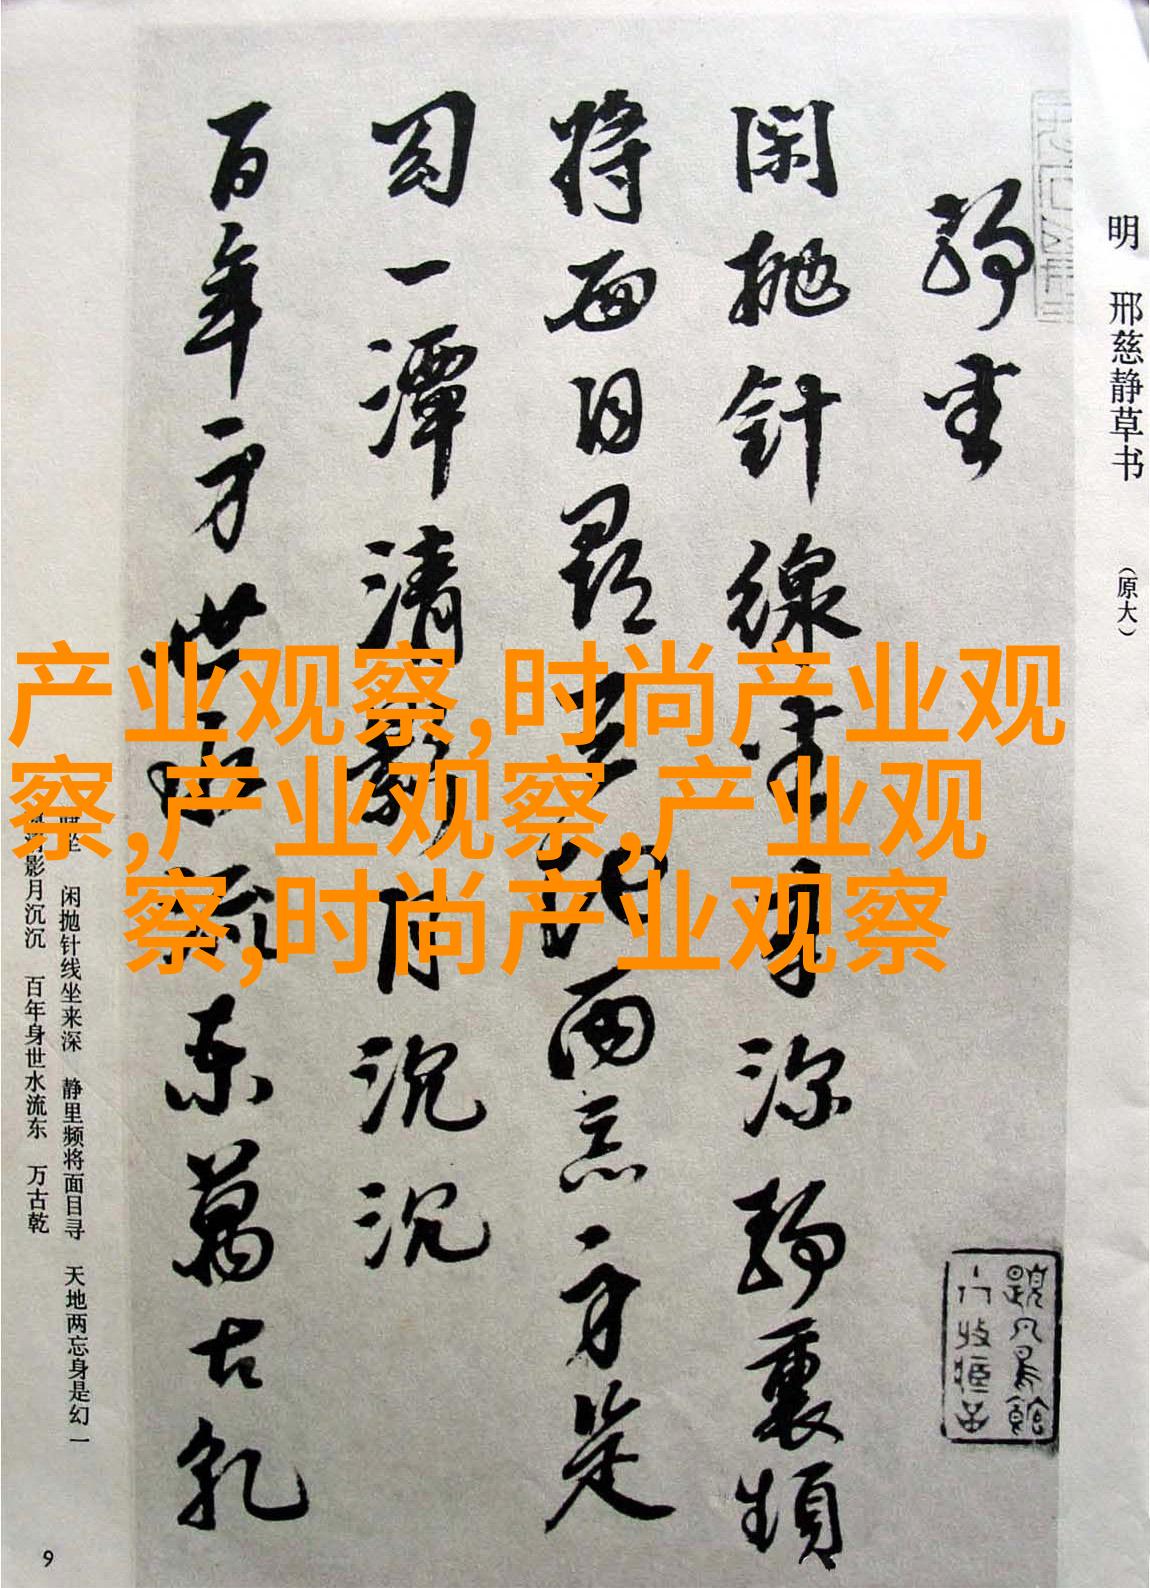 明 邢慈静草书 （原大）
静坐
闲抛针线坐来深静里频
将面目寻天地两忘身是
幻一潭清影月沉沉
百年身世水流东万古乾
产业观察,时尚产业观
察,产业观察,产业观
察,时尚产业观察
闲抛针线坐来深 静里频将面目寻 天地两忘身是幻 一
影月沉沉 百年身世水流东 万古乾
9